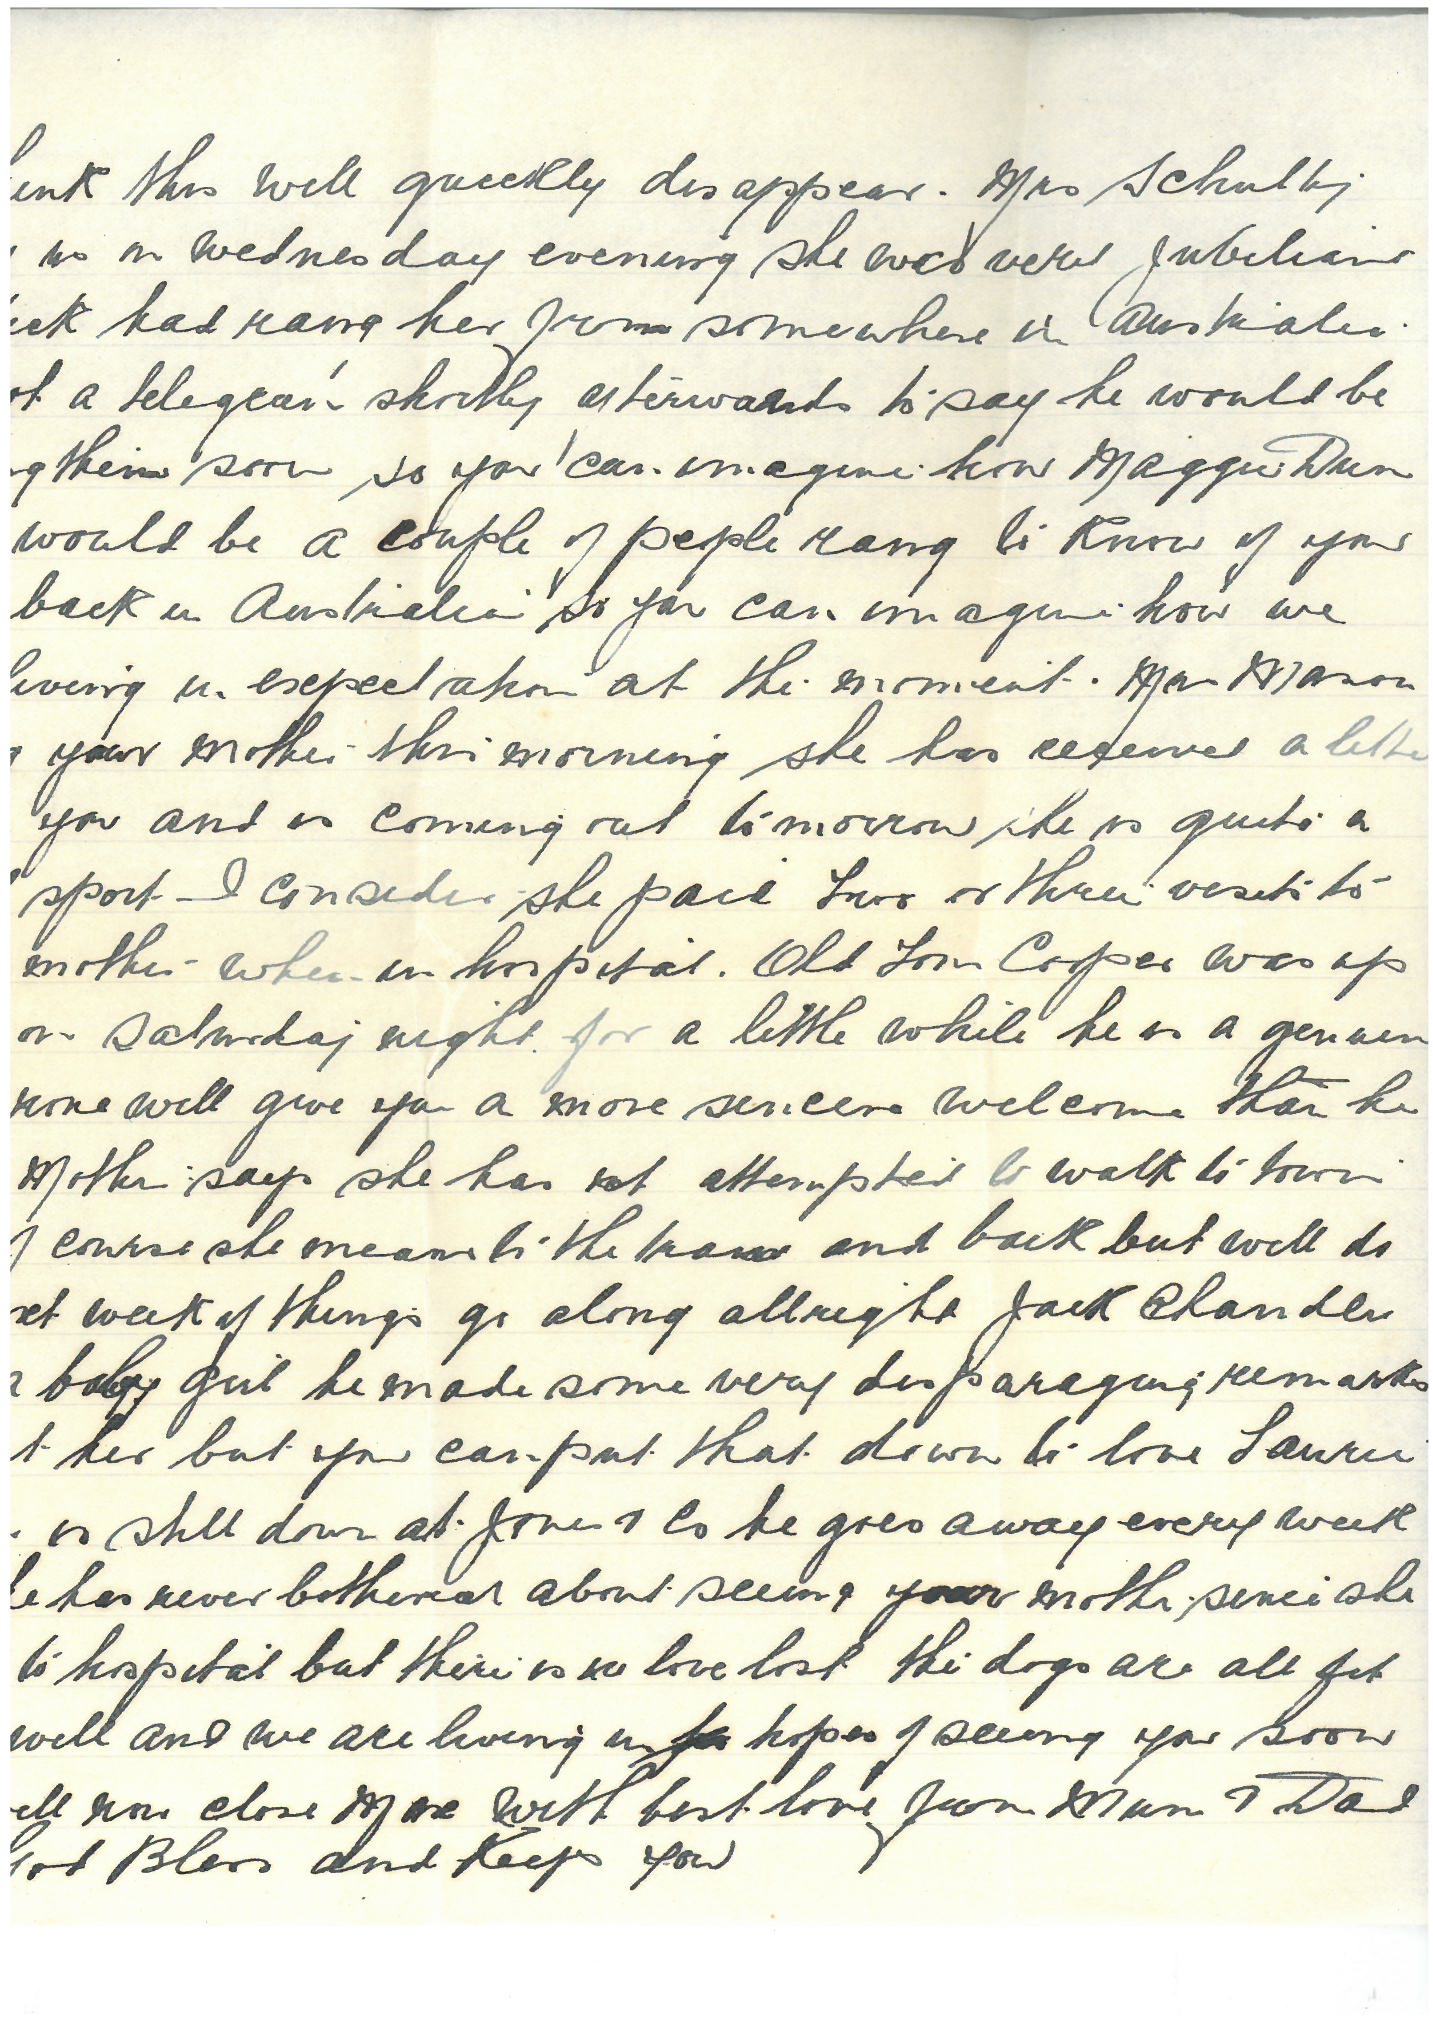 this will quickly disappear. Mrs Schultz
us on Wednesday evening she was very jubilant
had rang her from somewhere in Australia
a telegram shortly afterwards to say he would be
them soon so you can imagine how Maggie Dunn
would be a couple of people rang to know of your
back in Australia so you can imagine how we
living in expectation at the moment. Mrs Mason
your mother this morning she has received a letter
you and is coming out tomorrow she is quite a
sport I consider she paid two or three visits to
mother when in hospital. Old Tom Cooper was up
on Saturday night for a little while he is a genuine
none will give you a more sincere welcome than he
Mother says she has not attempted to walk to town
of course she means to the tram and back but will do
week if things go along allright Jack Chandler
baby girl he made some very disparaging remarks
her but you can put that down to love Laurie
is still down at Jones & Co he goes away every week
he has never bothered about seeing your mother since she
to hospital but there is no love lost the dogs are all fat
well and we are living in hopes of seeing you soon
now close Max with best love from Mum & Dad
God Bless and Keep you